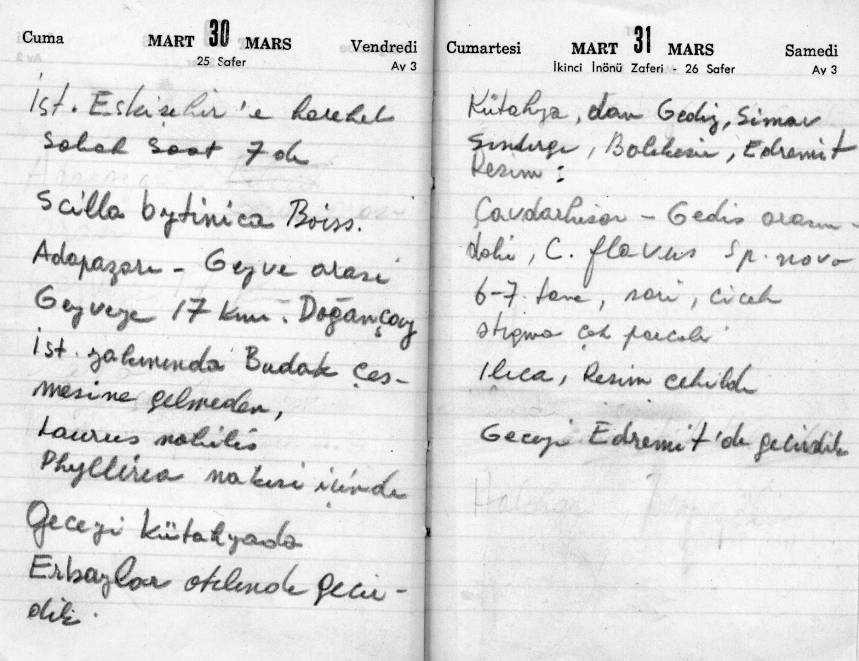 Cuma MART 30 MARS Vendredi
25 Safer Av 3
İst. Eskisehir'e hareket
Sabah Saat 7 de
Scilla bytinica Boiss.
Adapazarı - Geyve arasi
Geyveye 17 km. Doğançay
İst. yakınında Budak çes-
mesine gelmeden,
Laurus nobilis
Phyllirea makisi içinde
Geceyi Kütahyada
Erbaylar otelinde geçir-
dik.
Cumartesi MART 31 MARS Samedi
İkinci İnönü Zaferi - 26 Safer Av 3
Kütahya, dan Gediz, Simav
Sındırgı, Balıkesir, Edremit
Resim :
Çavdarhisar - Gedis arasın-
daki, C. flavus Sp. nova
6-7 tane, sarı, cicek
stigma çok parcalı
Ilıca, Resim cekildi
Geceyi Edremit'de gecirdik